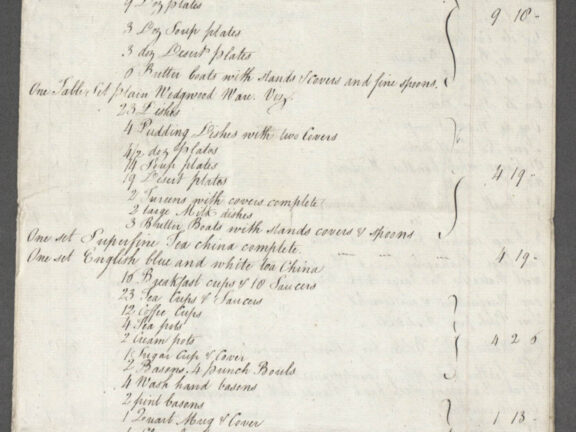 9 Doz plates
9 18 -
3 Doz Soup plates
3 doz Desert plates
6 Butter boats with stands & covers and fine spoons.
One Table Set plain Wedgwood Ware. Viz
23 Dishes
4 Pudding Dishes with two Covers
4½ doz Plates
14 Soup plates
19 Desert plates
4 19 -
2 Tureens with covers complete
2 large Milk dishes
3 Butter Boats with stands covers & spoons
One set Superfine Tea china complete
4 19 -
One set English blue and white tea China
10 Breakfast cups & 10 Saucers
23 Tea Cups & Saucers
12 Coffe Cups
4 Tea pots
2 Cream pots
4 2 6
1 Sugar Cup & Cover
2 Basons. 4 punch Bowls
4 Wash hand basons
2 pint basons
1 Quart Mug & Cover
1 13 -